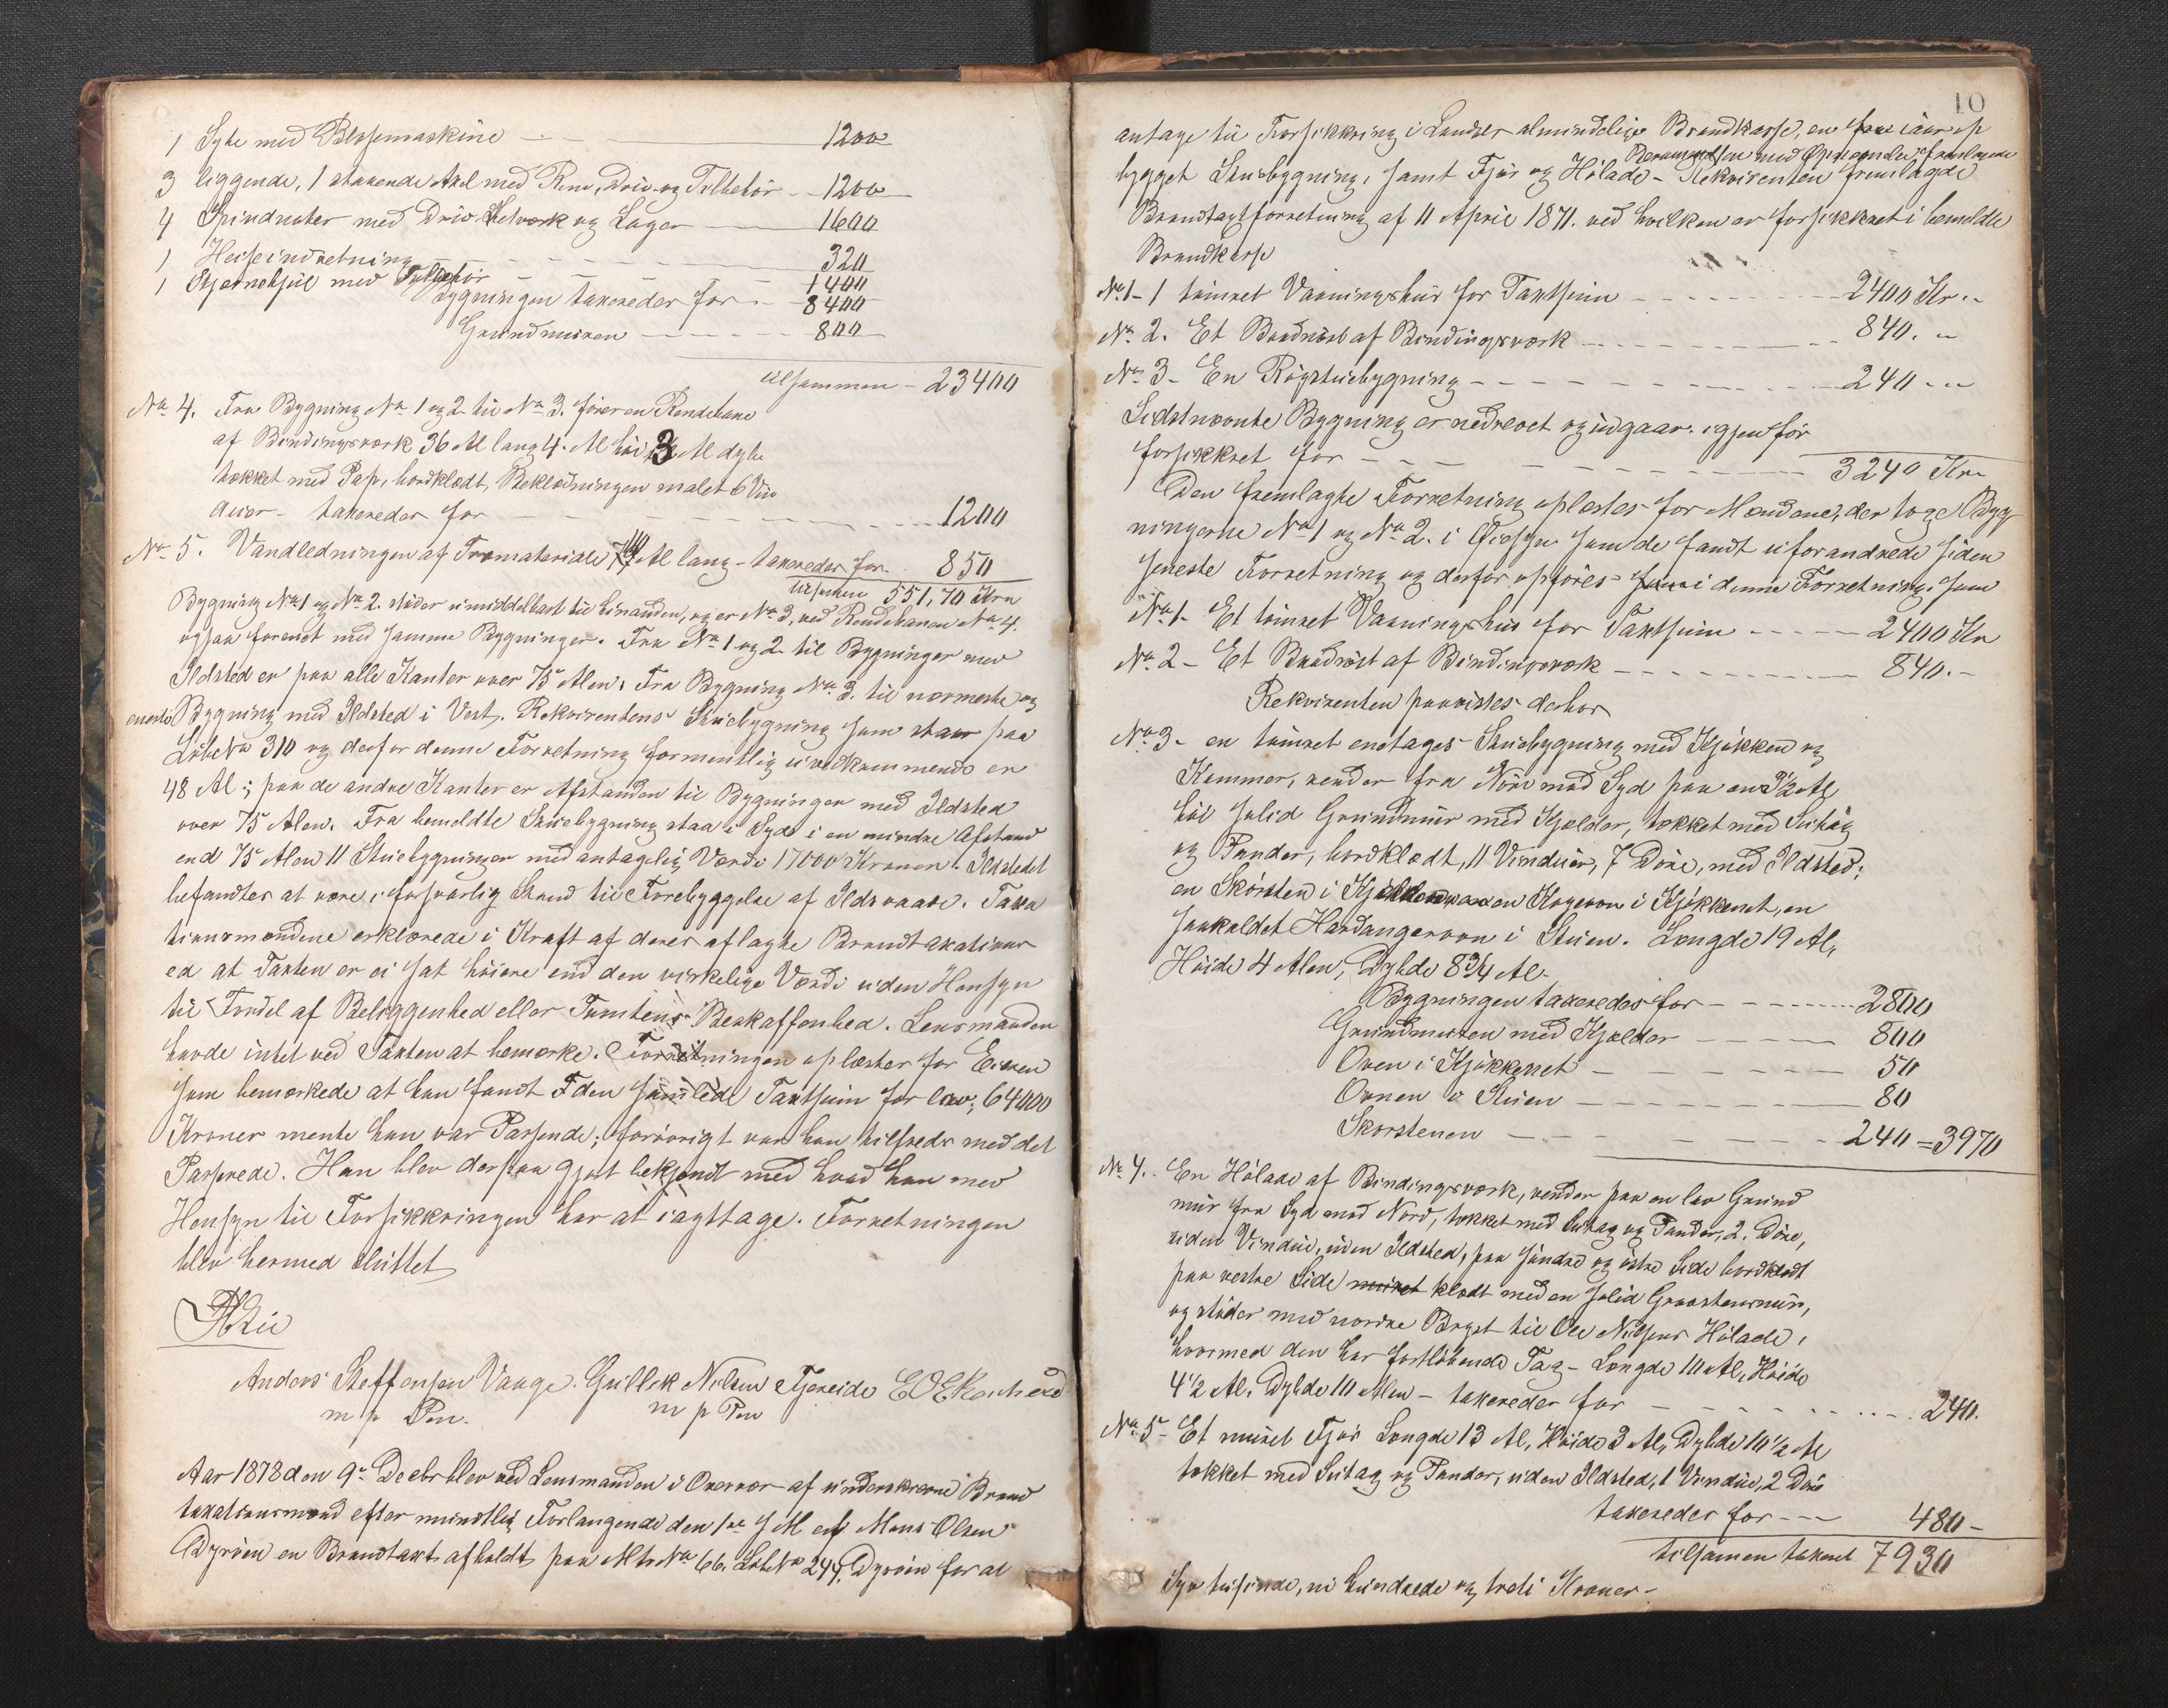 1 Syke med Blæsemaskine - - - 1200
3 liggende, 1 staaende Axel med Rem, Driv- og Tilbehör - 1200
4 Spindruter med Driv. Hetværk og Lager - 1600
1 Heiseindretning - - - 320
1 Stjernehjul med Tilbehör - - - 1400
Bygningen taxeredes for - - 8400
Grundmuren - - - 800
tilsammen - 23400
No 4. Fra Bygning No 1 og 2 til No 3. förer en Rendebane
af Bindingsværk 36 Al lang 4. Al höi, 3 Al dyb
tækket med Pap, bordklædt, Beklædningen malet 6 Vin
duer - taxeredes for - - - 1200
No 5. Vandledningen af Træmateriale 70 Al lang - taxeredes for - 850
tilsammen 551,70 Krn
Bygning No 1 og No 2. stöder umiddelbart til hinanden, og er No 3, ved Rendebanen No 4.
ogsaa forenet med samme Bygninger. Fra No 1 og 2 til Bygninger med
Ildsted er paa alle Kanter over 75 Alen; Fra Bygning No 3. til nærmeste og
eneste Bygning med Ildsted i Vest. Rekvirentens Stuebygning som staar paa
Löbe No 310 og derfor denne Forretning formentlig uvedkommende er
48 Al; paa de andre Kanter er Afstanden til Bygninger med Ildsted
over 75 Alen. Fra bemeldte Stuebygning staa i Syd i en mindre Afstand
end 75 Alen 11 Stuebygninger med antagelig Værdi 17000 Kroner. Ildstedet
befandtes at være i forsvarlig Stand til Forebyggelse af Ildsvaade. Taxa
tionsmændene erklærede i Kraft af deres aflagte Brandtaxations
ed at Taxten er ei sat höiere end den virkelige Værdi uden Hensyn
til Fordel af Beliggenhed eller Tomtens Beskaffenhed. Lensmanden
havde intet ved Taxten at bemærke. Forretningen oplæstes for Eieren
som bemærkede at han fandt den samlede Taxtsum for lav; 64000
Kroner mente han var Passende; forövrigt var han tilfreds med det
Passerede. Han blev derpaa gjort bekjendt med hvad han med
Hensyn til Forsikkringen har at iagttage. Forretningen
blev hermed sluttet
Anders Steffensen Vange. Gullik Nilsen Tjereide
m p Pen. m p Pen
Aar 1878 den 9de Decbr blev ved Lensmanden i Overvær af underskrevne Brand
taxationsmænd efter mundtlig Forlangende den 1ste d M af Mons Olsen
Dyröen en Brandtaxt afholdt paa Mtr No 66. Löbe No 244. Dyröen for at
10
antage til Forsikkring i Landets almindelige Brandkasse, en for iaar op
bygget Stuebygning, samt Fjös og Hölade - Rekvirenten fremlagde
Brandtaxtforretning af 11 April 1871. ved hvilken er forsikkret i bemeldte
Brandkasse
No 1 - 1 tömret Vaaningshus for Taxtsum - - - 2400 Kr. -
No 2. Et Baadnöst af Bindingsværk - - - 840. -
No 3 - En Rögstuebygning - - - 240 - -
Sidstnævnte Bygning er nedrevet og udgaar. igjen för
forsikkret for - - - 3240 Kr
Den fremlagte Forretning oplæstes for Mændene, der toge Byg
ningerne No 1 og No 2. i Öiesyn som de fandt uforandrede siden
seneste Forretning og derfor opföres i denne Forretning. som
No 1 - Et tömret Vaaningshus for Taxtsum - - - 2400 Kr
No 2 - Et Baadnöst af Bindingsværk - - - 840. -
Rekvirenten paavistes derhos
No 3 - en tömret enetages Stuebygning med Kjökken og
Kammer, vender fra Nord mod Syd paa en 3½ Al
höi solid Grundmur med Kjelder, tækket med Sutag
og Pander, bordklædt, 11 Vinduer, 7 Döre, med Ildsted;
en Skorsten i Kjökken en Kogeovn i Kjökkenet, en
saakaldet Hardangerovn i Stuen. Længde 19 Al,
Höide 4 Alen, Dybde 8 3/4 Al.
Bygningen taxeredes for - - - 2800
Grundmuren med Kjelder - - - 800
Oven i Kjökkenet - - - 50
Ovnen i Stuen - - - 80
Skorstenen - - - 240 = 3970
No 4. En Hölade af Bindingsværk, vender paa en lav Grund
mur fra Syd mod Nord, tækket med Sutag og Pander, 2. Döre,
uden Vindue, uden Ildsted, paa söndre og östre Side bordklædt
paa vestre Side muret klædt med en solid Graastensmur,
og stöder med nordre Bryst til Ole Nilsens Hölade,
hvormed den har fortlöbende Tag - Længde 10 Al, Höide
4½ Al. Dybde 10 Alen - taxeredes for - - - 240.
No 5 - Et muret Fjös Længde 13 Al, Höide 3 Al, Dybde 10½ Al
tækket med Sutag og Pander, uden Ildsted, 1 Vindue, 2 Döre
taxeredes for - - - 480 -
tilsamen taxeret 7930
Syv tusinde, ni hundrede og treti Kroner -